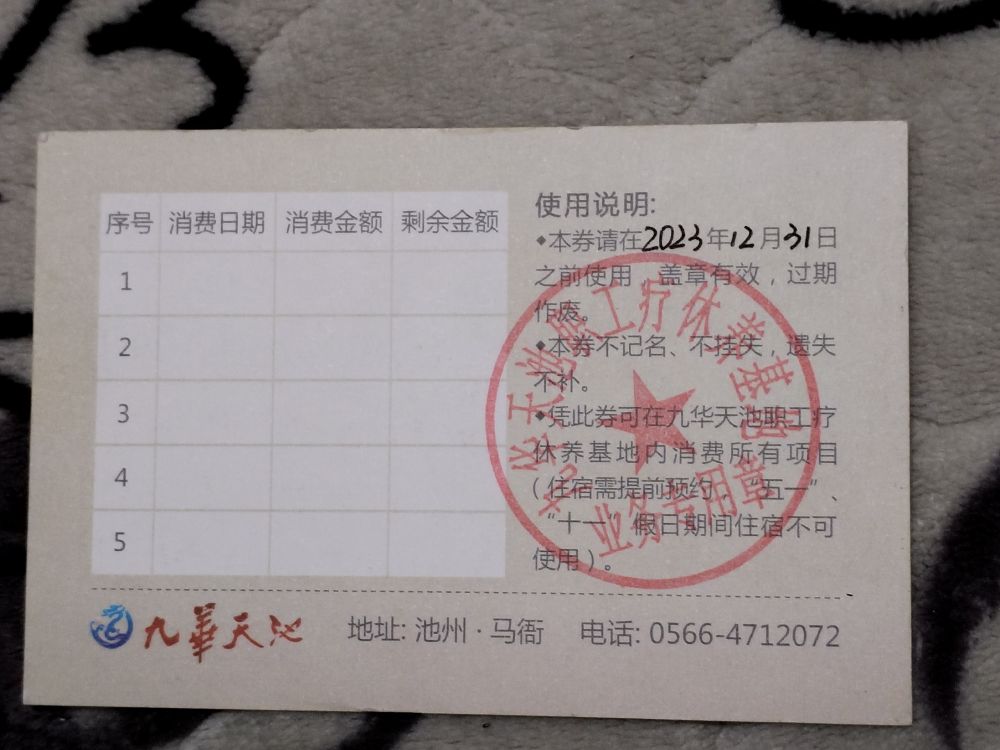 序号 消费日期 消费金额 剩余金额
1
2
3
4
5
使用说明:
◆本券请在2023年12月31日
之前使用，盖章有效，过期
作废。
◆本券不记名、不挂失，遗失
不补。
◆凭此券可在九华天池职工疗
休养基地内消费所有项目
（住宿需提前预约，“五一”、
“十一”假日期间住宿不可
使用）。
九华天池职工疗休养基地
业务专用章
九華天池 地址: 池州 · 马衙 电话: 0566-4712072